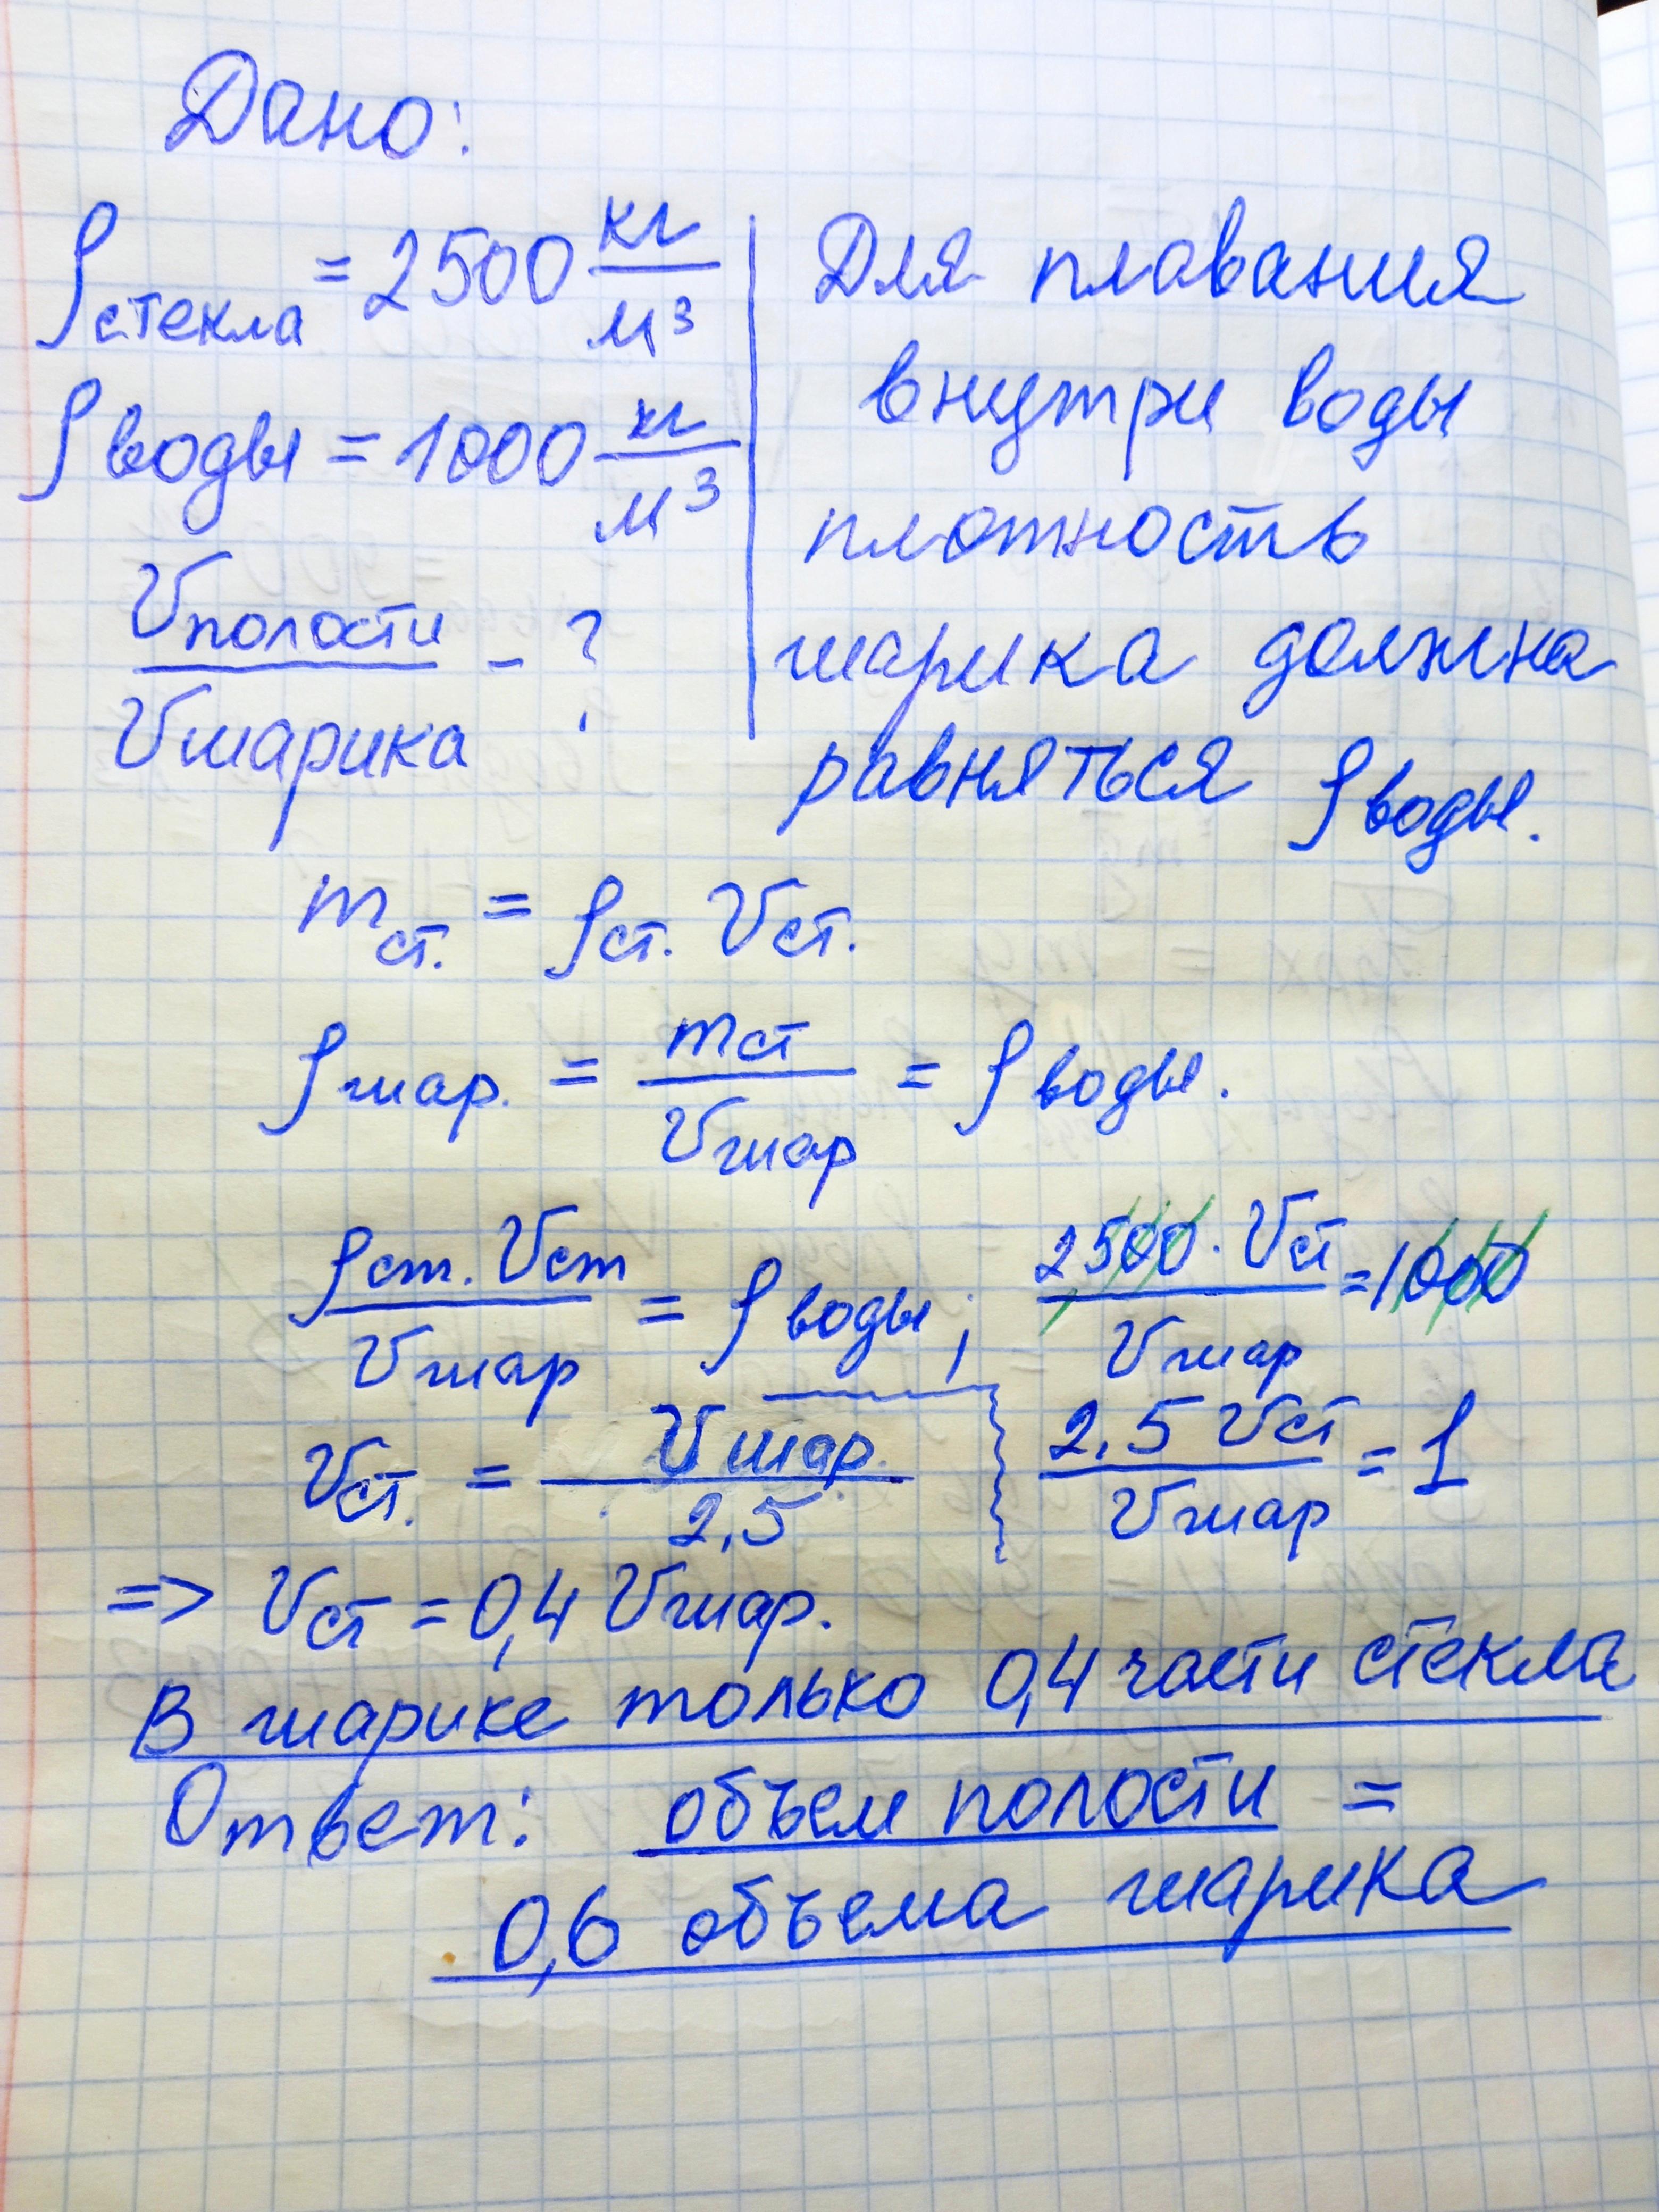 Дано:
ρстекла = 2500 кг/м³
ρводы = 1000 кг/м³
Vполости/Vшарика - ?
Для плавания
внутри воды
плотность
шарика должна
равняться ρводы.
mст. = ρст. Vст.
ρшар. = mст/Vшар = ρводы.
ρст. Vст/Vшар = ρводы; 2500 · Vст/Vшар = 1000
Vст. = Vшар./2,5
2,5 Vст/Vшар = 1
=> Vст = 0,4 Vшар.
В шарике только 0,4 части стекла
Ответ: объем полости =
0,6 объема шарика